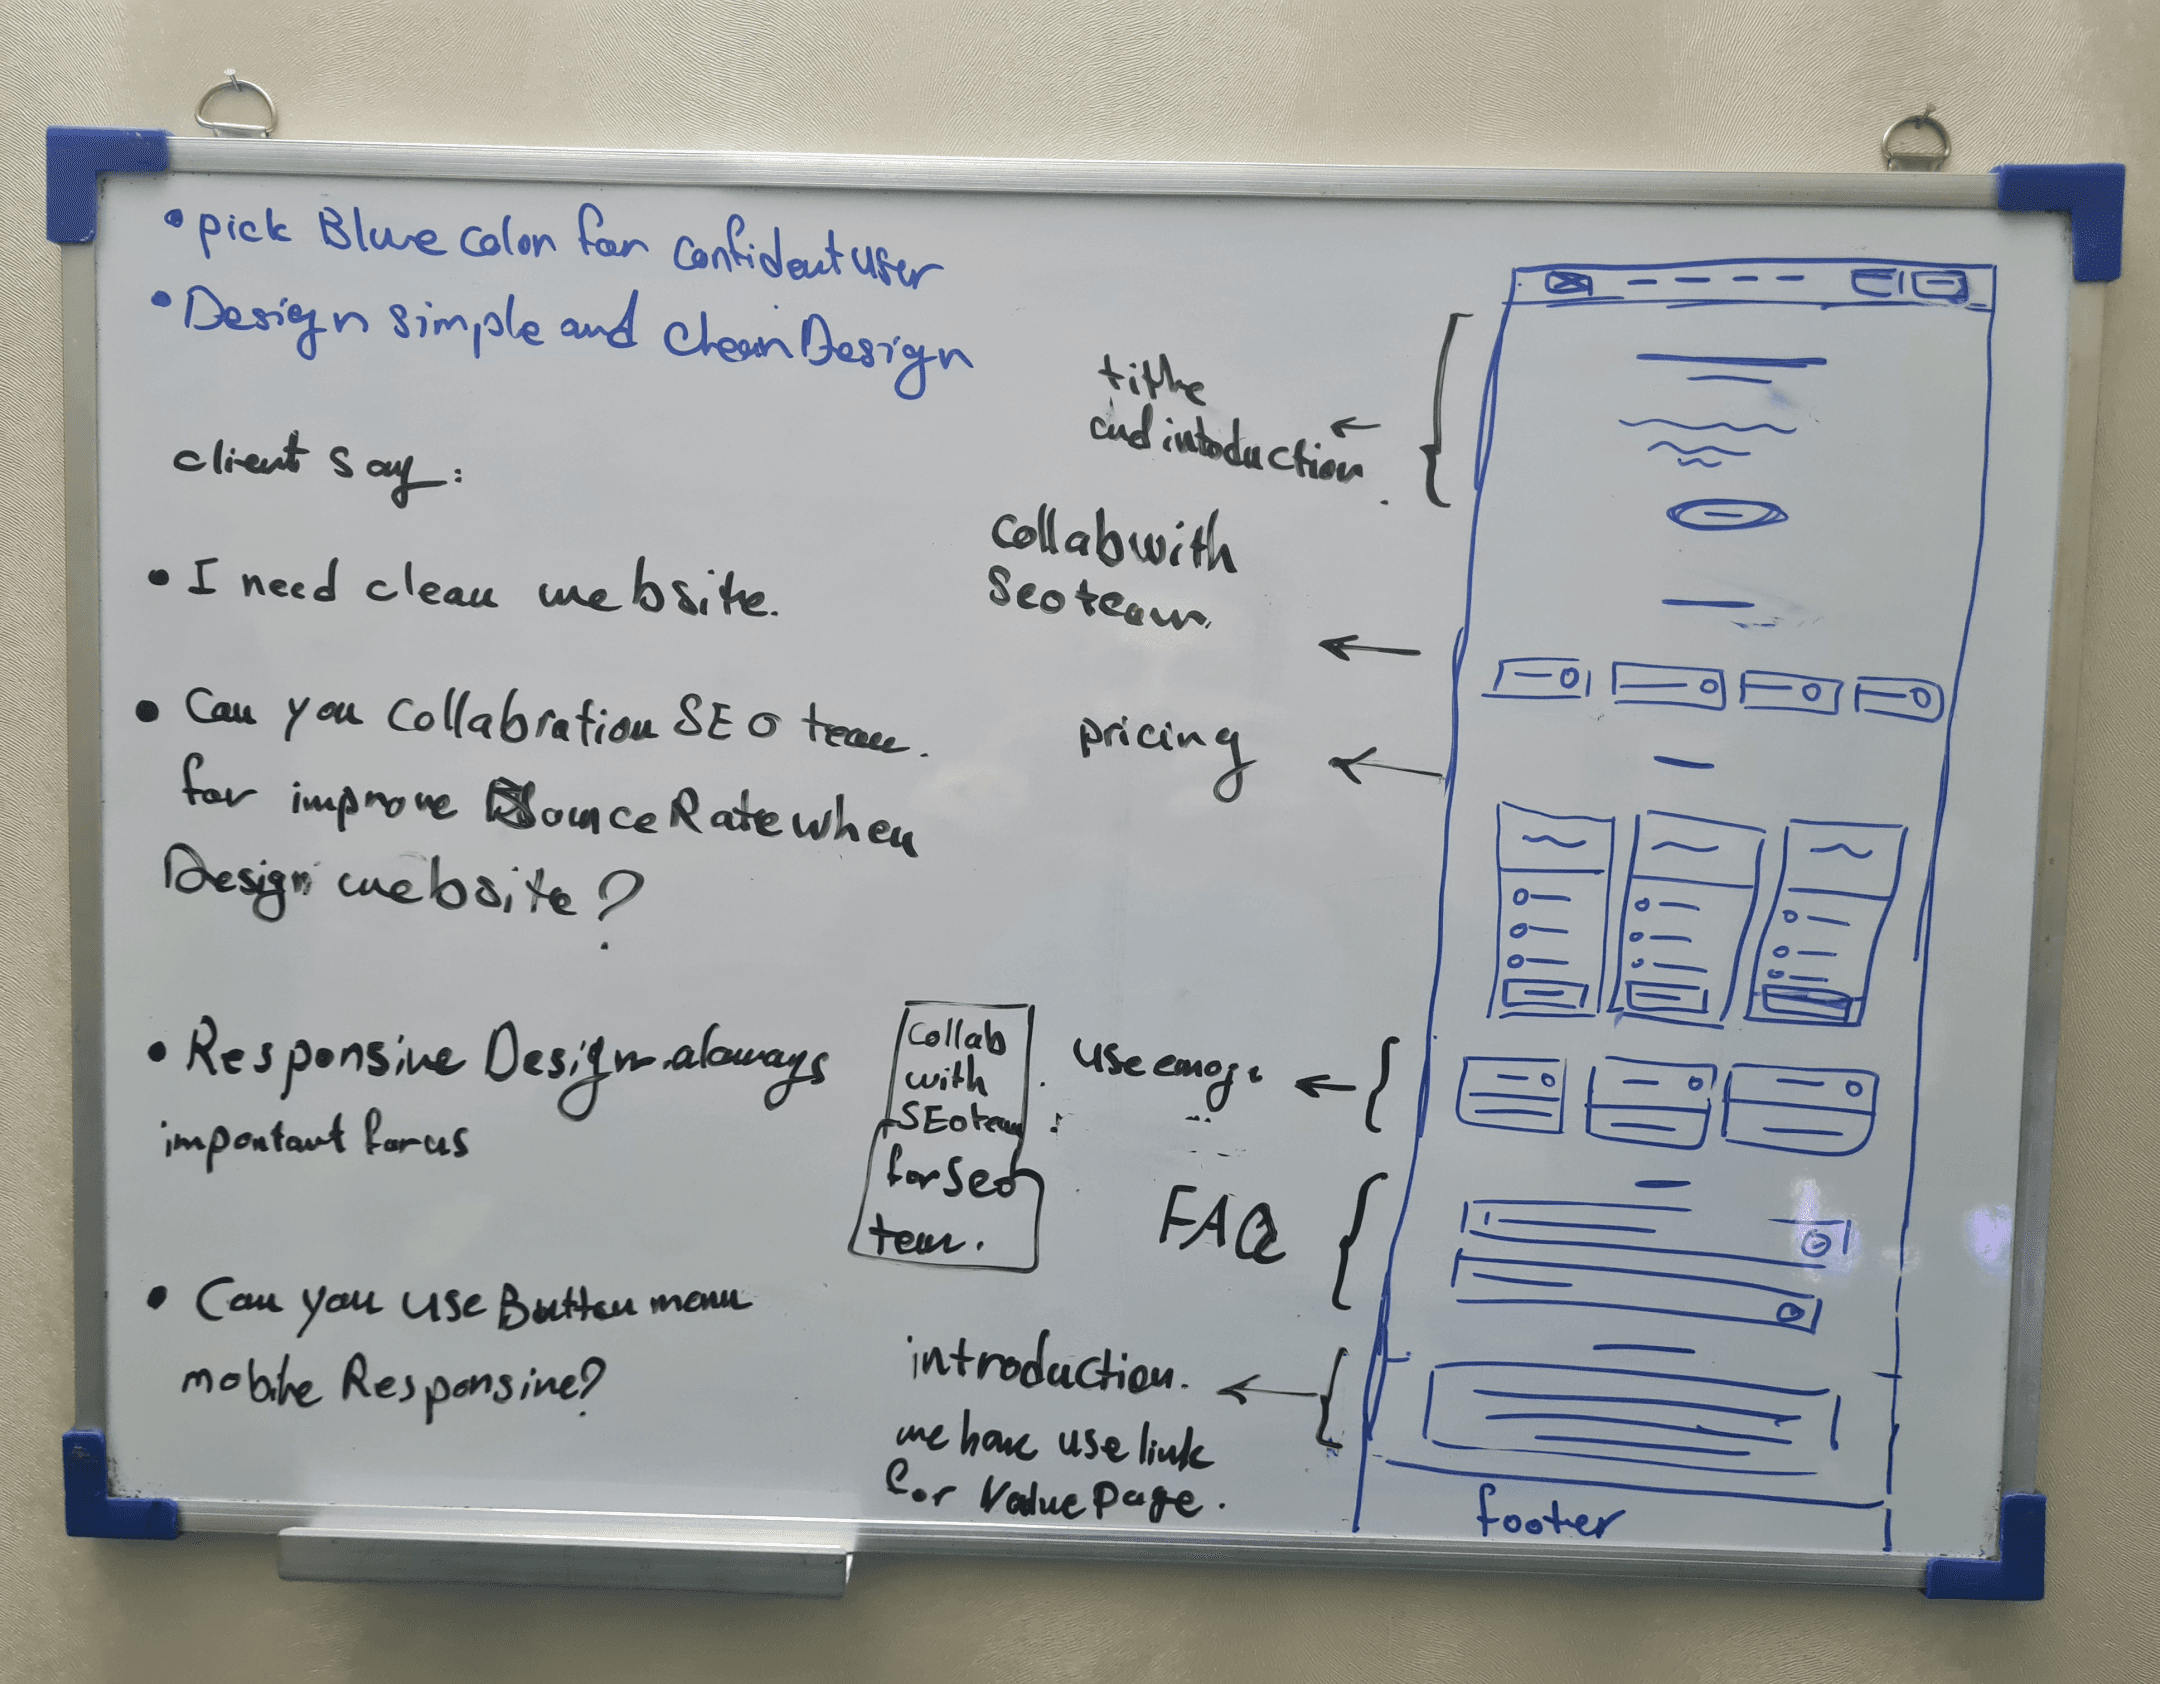 • pick Blue color for confident user
• Design simple and clean Design
client say:
• I need clean website.
• Can you Collabration SEO team.
for improve Bounce Rate when
Design website?
• Responsive Design always
important focus
• Can you use Button menu
mobile Responsive?
title
and intoduction.
Collab with
Seo team.
pricing
Collab
with
SEO team
for Seo
team.
use emoji
FAQ
introduction.
we have use link
for Value Page.
footer